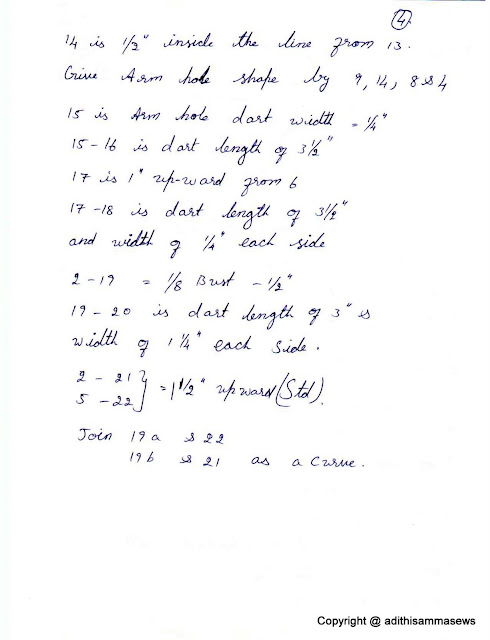 4.
14 is 1/2" inside the line from 13.
Give Arm hole shape by 9, 14, 8 & 4
15 is Arm hole dart width = 1/4"
15-16 is dart length of 3 1/2"
17 is 1" up-ward from 6
17-18 is dart length of 3 1/2"
and width of 1/4" each side
2-19 = 1/8 Bust - 1/2"
19-20 is dart length of 3" &
width of 1 1/4" each side.
2 - 21 } = 1 1/2" upward (Std).
5 - 22
Join 19a & 22
19b & 21 as a Curve.
Copyright @ adithisammasews